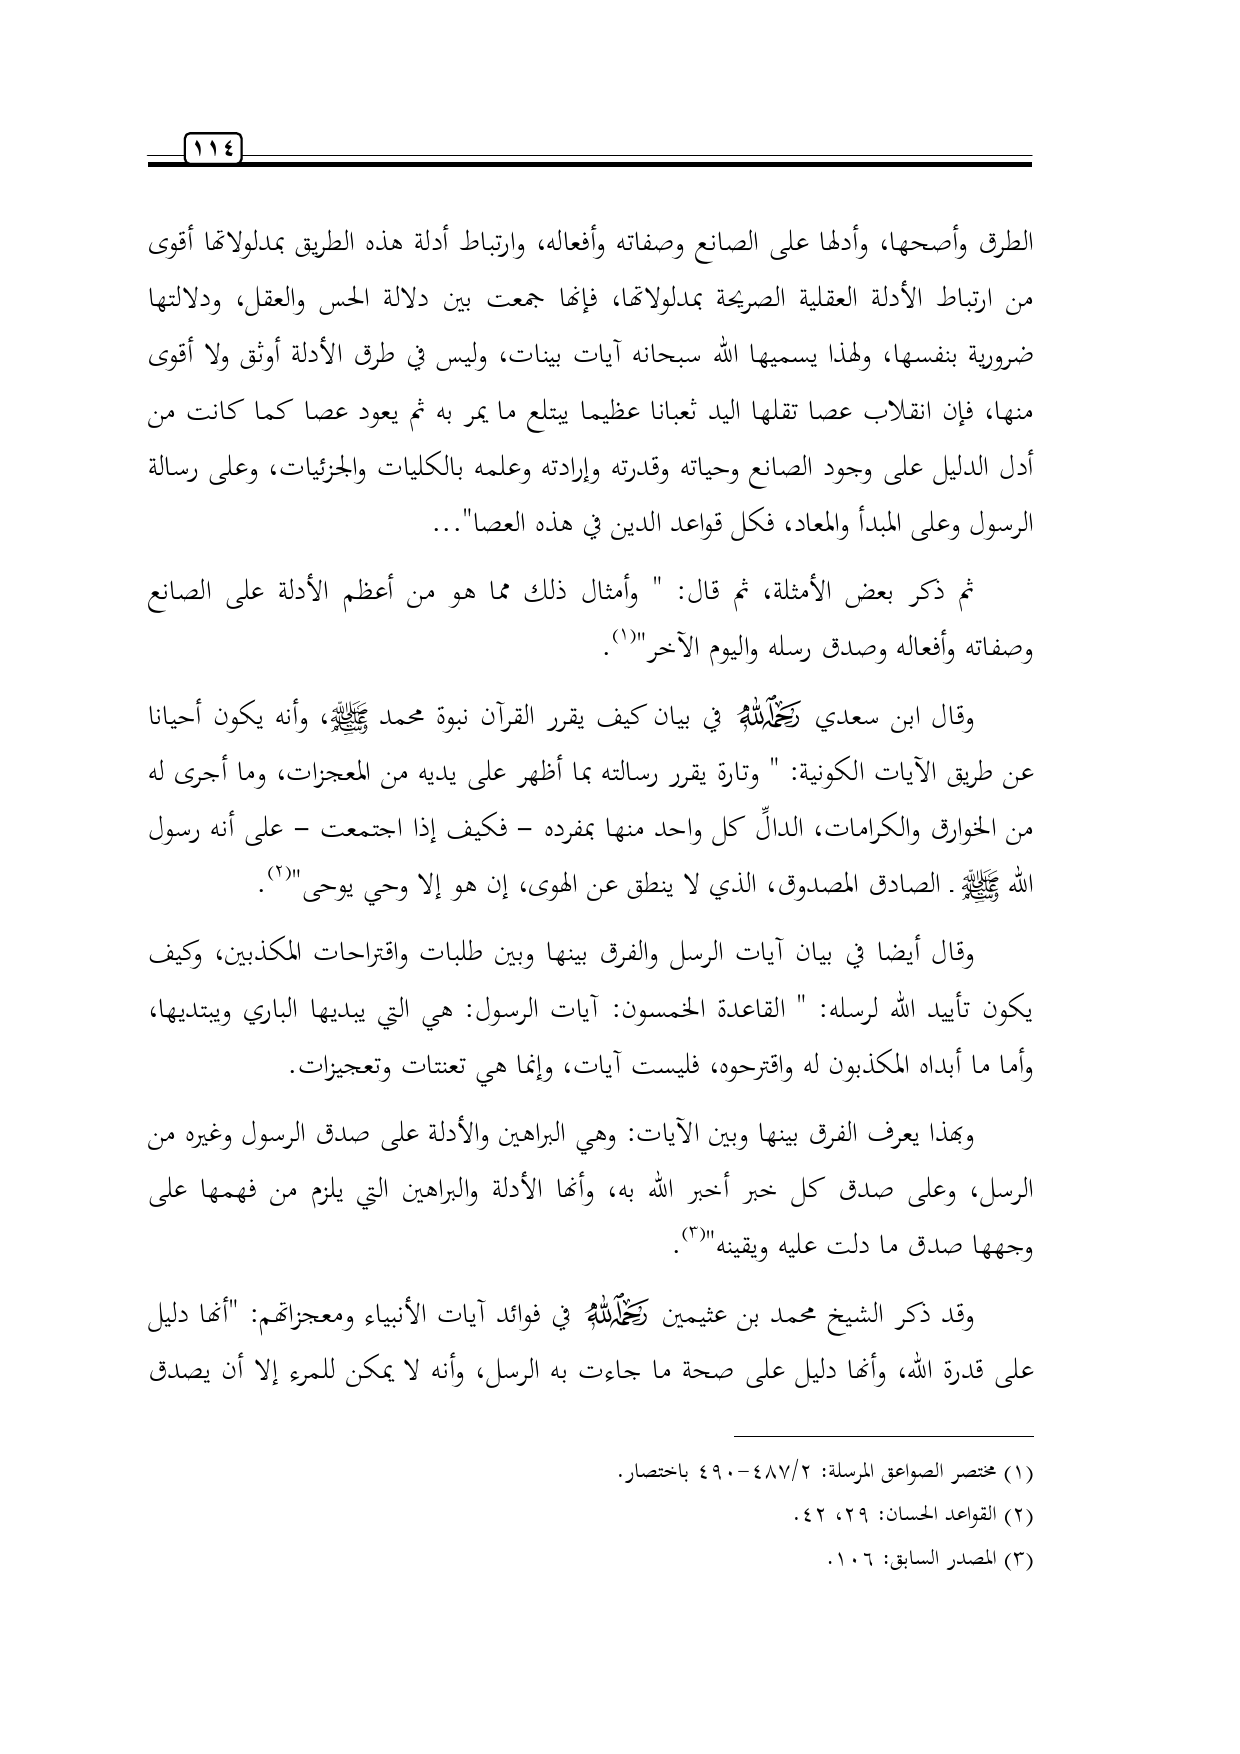 ١١٤
الطرق وأصحها، وأدلها على الصانع وصفاته وأفعاله، وارتباط أدلة هذه الطريق بمدلولاتها أقوى
من ارتباط الأدلة العقلية الصريحة بمدلولاتها، فإنها جمعت بين دلالة الحس والعقل، ودلالتها
ضرورية بنفسها، ولهذا يسميها الله سبحانه آيات بينات، وليس في طرق الأدلة أوثق ولا أقوى
منها، فإن انقلاب عصا تقلها اليد ثعبانا عظيما يبتلع ما يمر به ثم يعود عصا كما كانت من
أدل الدليل على وجود الصانع وحياته وقدرته وإرادته وعلمه بالكليات والجزئيات، وعلى رسالة
الرسول وعلى المبدأ والمعاد، فكل قواعد الدين في هذه العصا"...
ثم ذكر بعض الأمثلة، ثم قال: " وأمثال ذلك مما هو من أعظم الأدلة على الصانع
وصفاته وأفعاله وصدق رسله واليوم الآخر"(١).
وقال ابن سعدي رحمه الله في بيان كيف يقرر القرآن نبوة محمد ﷺ، وأنه يكون أحيانا
عن طريق الآيات الكونية: " وتارة يقرر رسالته بما أظهر على يديه من المعجزات، وما أجرى له
من الخوارق والكرامات، الدالِّ كل واحد منها بمفرده – فكيف إذا اجتمعت – على أنه رسول
الله ﷺ ـ الصادق المصدوق، الذي لا ينطق عن الهوى، إن هو إلا وحي يوحى"(٢).
وقال أيضا في بيان آيات الرسل والفرق بينها وبين طلبات واقتراحات المكذبين، وكيف
يكون تأييد الله لرسله: " القاعدة الخمسون: آيات الرسول: هي التي يبديها الباري ويبتديها،
وأما ما أبداه المكذبون له واقترحوه، فليست آيات، وإنما هي تعنتات وتعجيزات.
وبهذا يعرف الفرق بينها وبين الآيات: وهي البراهين والأدلة على صدق الرسول وغيره من
الرسل، وعلى صدق كل خبر أخبر الله به، وأنها الأدلة والبراهين التي يلزم من فهمها على
وجهها صدق ما دلت عليه ويقينه"(٣).
وقد ذكر الشيخ محمد بن عثيمين رحمه الله في فوائد آيات الأنبياء ومعجزاتهم: "أنها دليل
على قدرة الله، وأنها دليل على صحة ما جاءت به الرسل، وأنه لا يمكن للمرء إلا أن يصدق
(١) مختصر الصواعق المرسلة: ٤٨٧/٢–٤٩٠ باختصار.
(٢) القواعد الحسان: ٢٩، ٤٢.
(٣) المصدر السابق: ١٠٦.